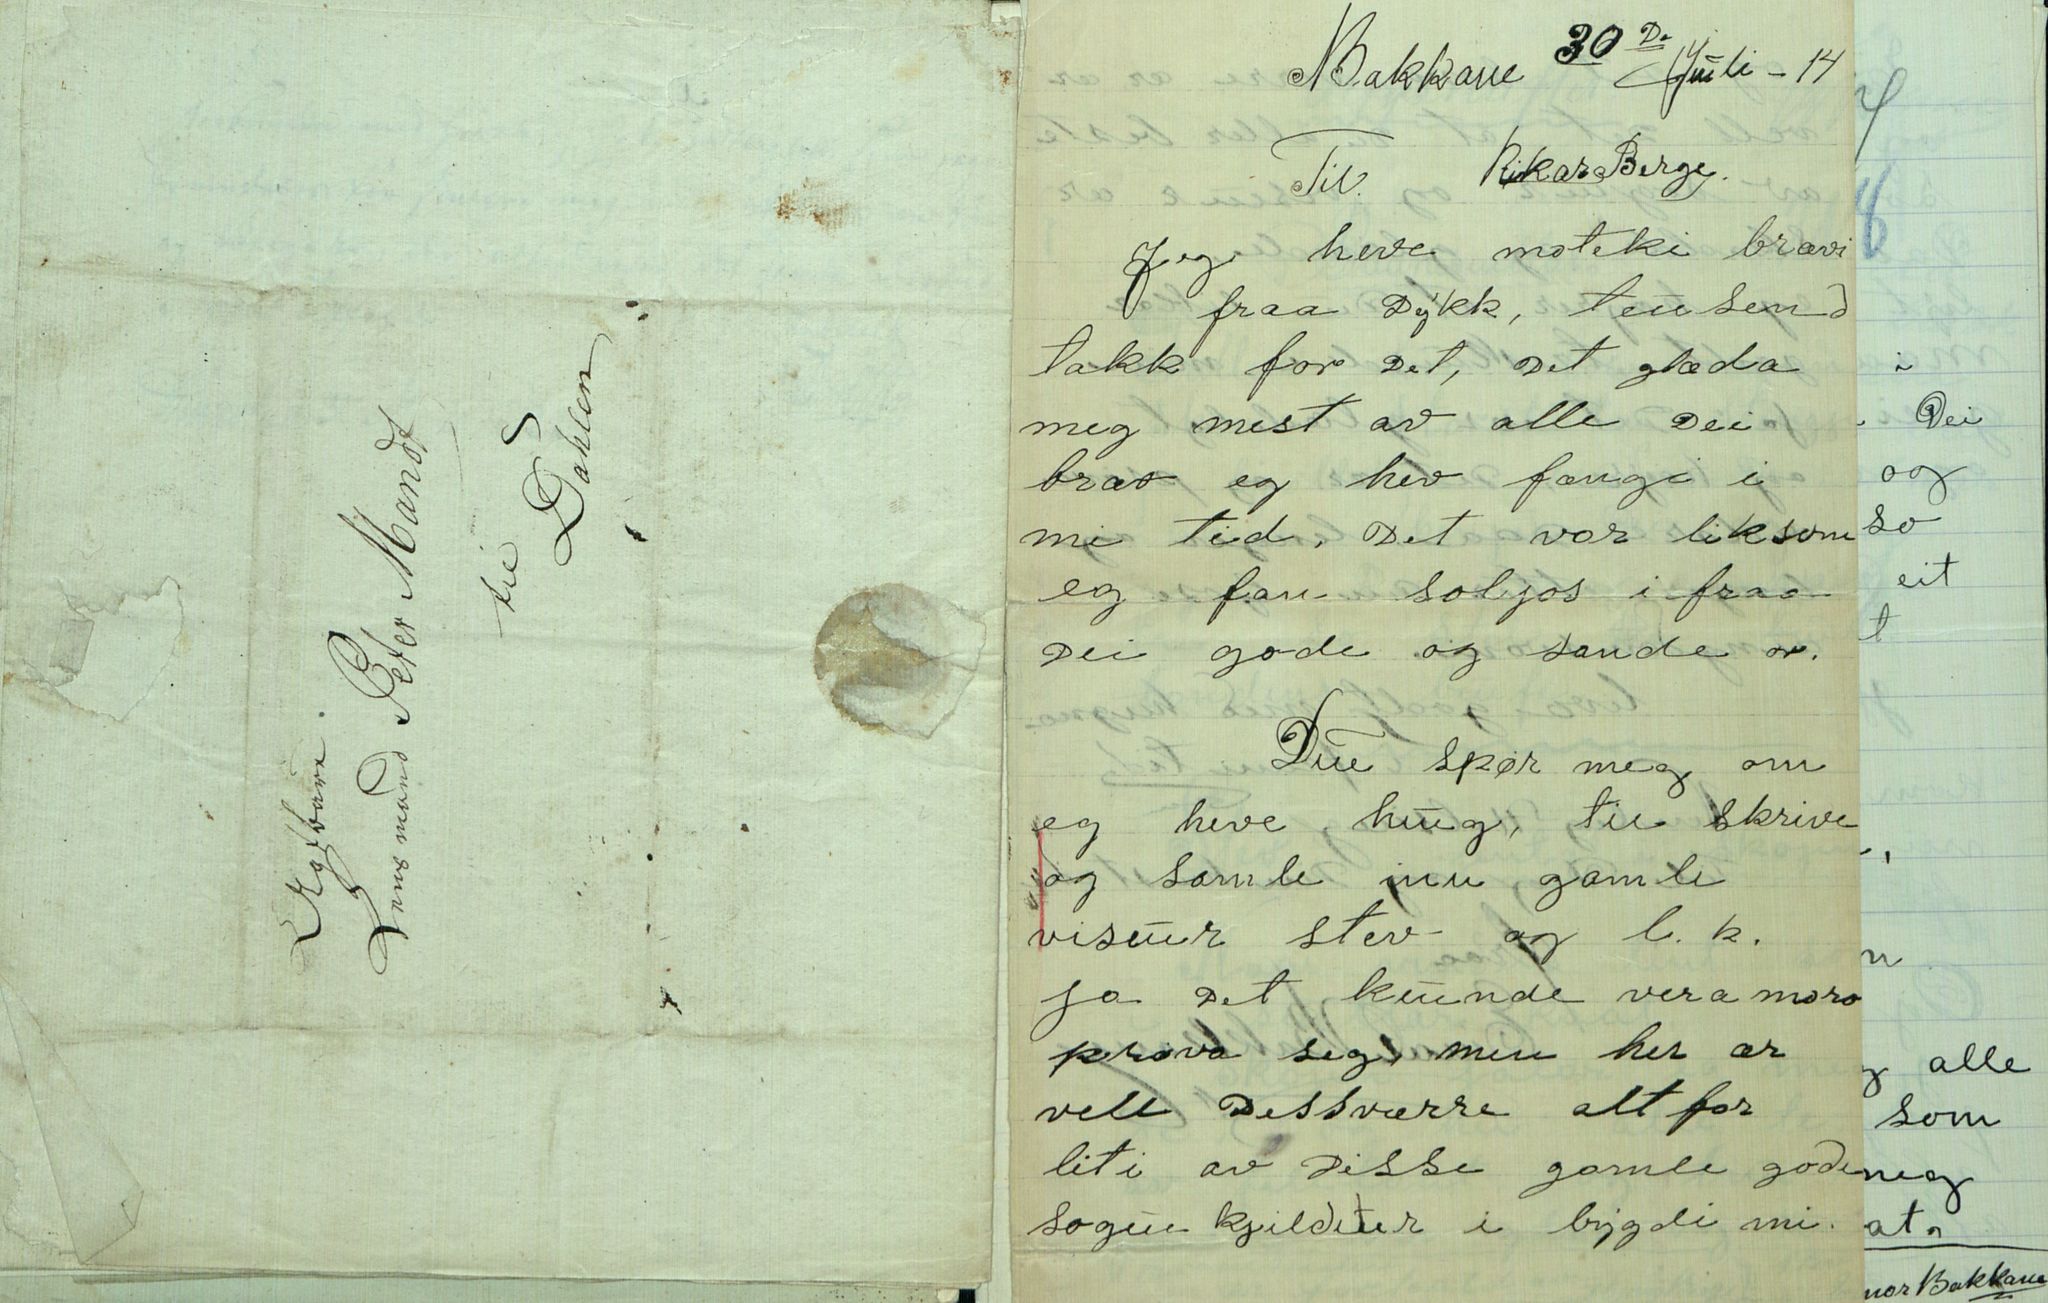 Ergstbaare
Lensmand Peter Mandt
til
Dahlen
Bakkane 30 De Juli - 14
Til. Rikar Berge.
Jeg heve moteki brævi
fraa Dykk, teusend
takk for Det, Det glæda
meg mest av alle Dei
bræv eg hev fængi i
mi tid. Det var liksom
eg fan soljos i fraa
Dei gode og sande or.
Due spør meg om
eg heve hüg, til skrive
og samle inn gamle
visuur stev og l. k.
ja Det kuunde vera moro
prøva seg, men her ær
vell Dessværre alt for
liti av Disse gamle gode
soguu kjilduur i bygdi mi.
i
Dei
og
so
eit
t
n
alle
som
meg
at.
nor Bakkane